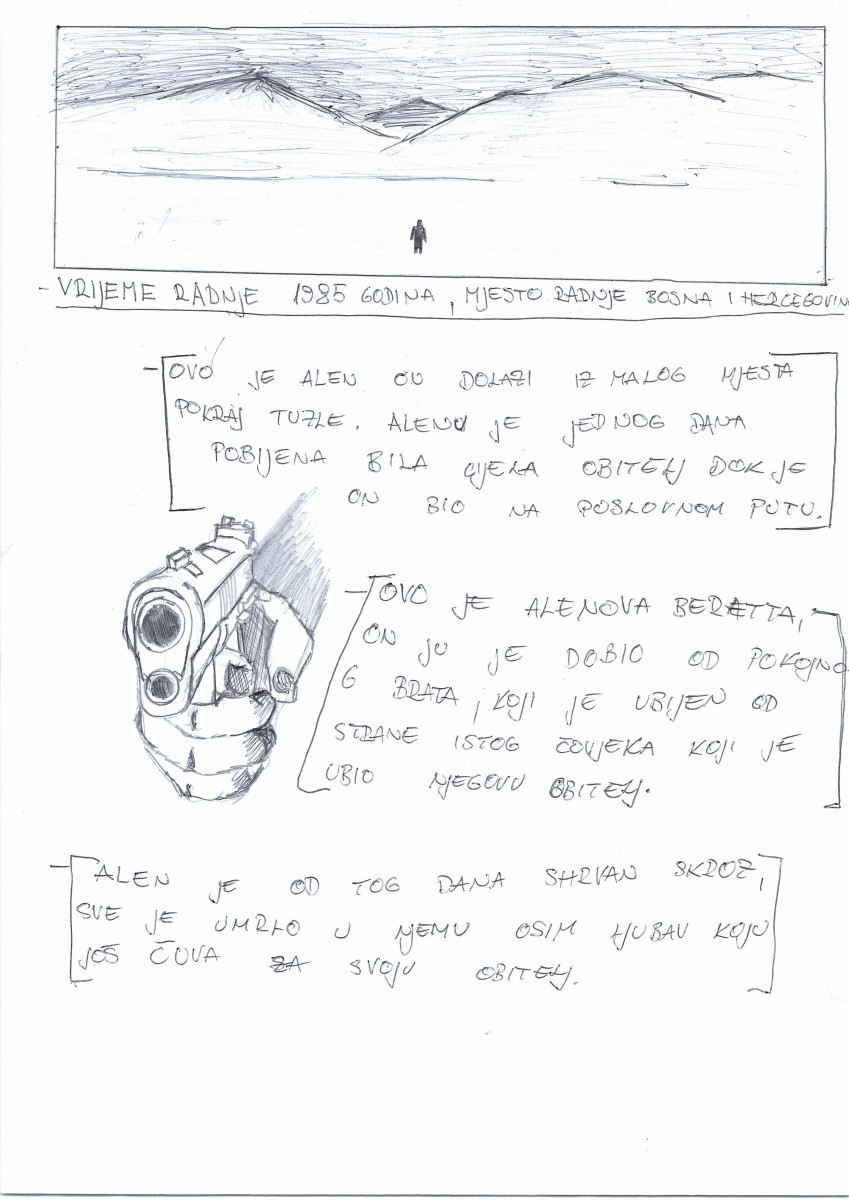 - VRIJEME RADNJE 1985 GODINA, MJESTO RADNJE BOSNA I HERCEGOVIN
- OVO JE ALEN ON DOLAZI IZ MALOG MJESTA
POKRAJ TUZLE. ALENU JE JEDNOG DANA
POBIJENA BILA CIJELA OBITELJ DOK JE
ON BIO NA POSLOVNOM PUTU.
- OVO JE ALENOVA BERETTA,
ON JU JE DOBIO OD POKOJNO
G BRATA, KOJI JE UBIJEN OD
STRANE ISTOG ČOVJEKA KOJI JE
UBIO NJEGOVU OBITELJ.
- ALEN JE OD TOG DANA SHRVAN SKROZ,
SVE JE UMRLO U NJEMU OSIM LJUBAV KOJU
JOŠ ČUVA ZA SVOJU OBITELJ.